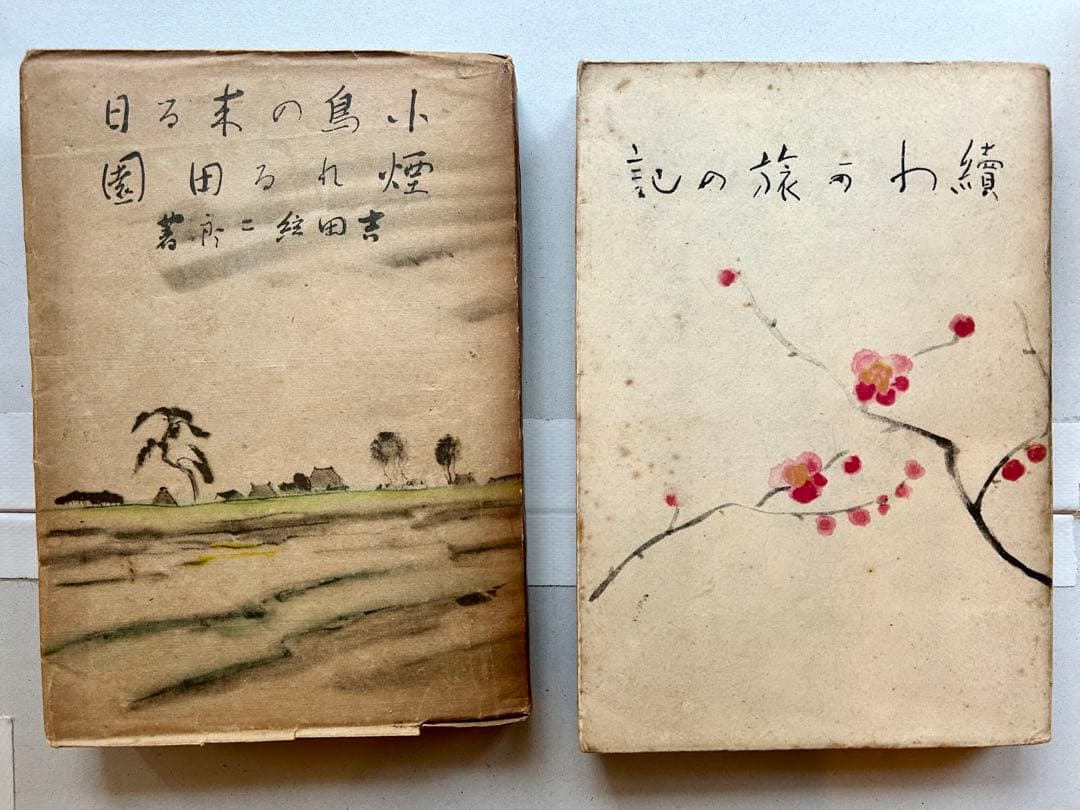 小鳥の来る日
煙れる田園
吉田絃二郎著
續わが旅の記